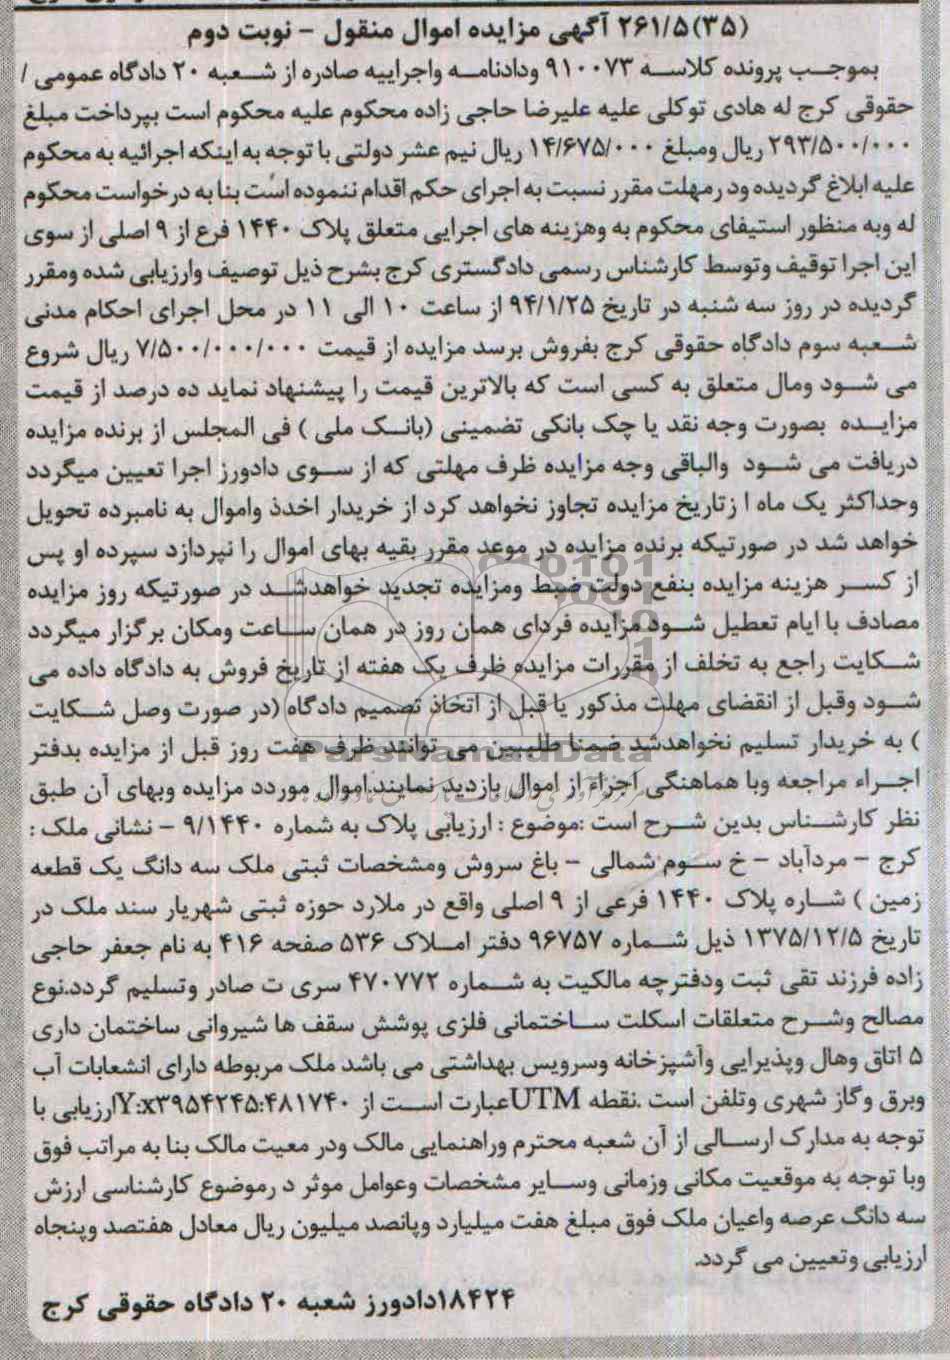 (۳۵)۲۶۱/۵ آگهی مزایده اموال منقول - نوبت دوم
بموجب پرونده کلاسه ۹۱۰۰۷۳ ودادنامه واجراییه صادره از شعبه ۲۰ دادگاه عمومی /
حقوقی کرج له هادی توکلی علیه علیرضا حاجی زاده محکوم علیه محکوم است بپرداخت مبلغ
۲۹۳/۵۰۰/۰۰۰ ریال ومبلغ ۱۴/۶۷۵/۰۰۰ ریال نیم عشر دولتی با توجه به اینکه اجرائیه به محکوم
علیه ابلاغ گردیده ود رمهلت مقرر نسبت به اجرای حکم اقدام ننموده است بنا به درخواست محکوم
له وبه منظور استیفای محکوم به وهزینه های اجرایی متعلق پلاک ۱۴۴۰ فرع از ۹ اصلی از سوی
این اجرا توقیف وتوسط کارشناس رسمی دادگستری کرج بشرح ذیل توصیف وارزیابی شده ومقرر
گردیده در روز سه شنبه در تاریخ ۹۴/۱/۲۵ از ساعت ۱۰ الی ۱۱ در محل اجرای احکام مدنی
شعبه سوم دادگاه حقوقی کرج بفروش برسد مزایده از قیمت ۷/۵۰۰/۰۰۰/۰۰۰ ریال شروع
می شود ومال متعلق به کسی است که بالاترین قیمت را پیشنهاد نماید ده درصد از قیمت
مزایده بصورت وجه نقد یا چک بانکی تضمینی (بانک ملی ) فی المجلس از برنده مزایده
دریافت می شود والباقی وجه مزایده ظرف مهلتی که از سوی دادورز اجرا تعیین میگردد
وحداکثر یک ماه ا زتاریخ مزایده تجاوز نخواهد کرد از خریدار اخدذ واموال به نامبرده تحویل
خواهد شد در صورتیکه برنده مزایده در موعد مقرر بقیه بهای اموال را نپردازد سپرده او پس
از کسر هزینه مزایده بنفع دولت ضبط ومزایده تجدید خواهدشد در صورتیکه روز مزایده
مصادف با ایام تعطیل شود مزایده فردای همان روز در همان ساعت ومکان برگزار میگردد
شکایت راجع به تخلف از مقررات مزایده ظرف یک هفته از تاریخ فروش به دادگاه داده می
شود وقبل از انقضای مهلت مذکور یا قبل از اتخاذ تصمیم دادگاه (در صورت وصل شکایت
) به خریدار تسلیم نخواهدشد ضمنا طلبین می توانند ظرف هفت روز قبل از مزایده بدفتر
ParsNamadData
اجراء مراجعه وبا هماهنگی اجراء از اموال بازدید نمایند.اموال موردد مزایده وبهای آن طبق
نظر کارشناس بدین شرح است :موضوع : ارزیابی پلاک به شماره ۹/۱۴۴۰ - نشانی ملک :
کرج - مردآباد - خ سوم شمالی - باغ سروش ومشخصات ثبتی ملک سه دانگ یک قطعه
زمین ) شاره پلاک ۱۴۴۰ فرعی از ۹ اصلی واقع در ملارد حوزه ثبتی شهریار سند ملک در
تاریخ ۱۳۷۵/۱۲/۵ ذیل شماره ۹۶۷۵۷ دفتر املاک ۵۳۶ صفحه ۴۱۶ به نام جعفر حاجی
زاده فرزند تقی ثبت ودفترچه مالکیت به شماره ۴۷۰۷۷۲ سری ت صادر وتسلیم گردد.نوع
مصالح وشرح متعلقات اسکلت ساختمانی فلزی پوشش سقف ها شیروانی ساختمان داری
۵ اتاق وهال وپذیرایی وآشپزخانه وسرویس بهداشتی می باشد ملک مربوطه دارای انشعابات آب
وبرق وگاز شهری وتلفن است .نقطه UTMعبارت است از Y:x۳۹۵۴۲۴۵:۴۸۱۷۴۰ارزیابی با
توجه به مدارک ارسالی از آن شعبه محترم وراهنمایی مالک ودر معیت مالک بنا به مراتب فوق
وبا توجه به موقعیت مکانی وزمانی وسایر مشخصات وعوامل موثر د رموضوع کارشناسی ارزش
سه دانگ عرصه واعیان ملک فوق مبلغ هفت میلیارد وپانصد میلیون ریال معادل هفتصد وپنجاه
ارزیابی وتعیین می گردد.
۱۸۴۲۴دادورز شعبه ۲۰ دادگاه حقوقی کرج